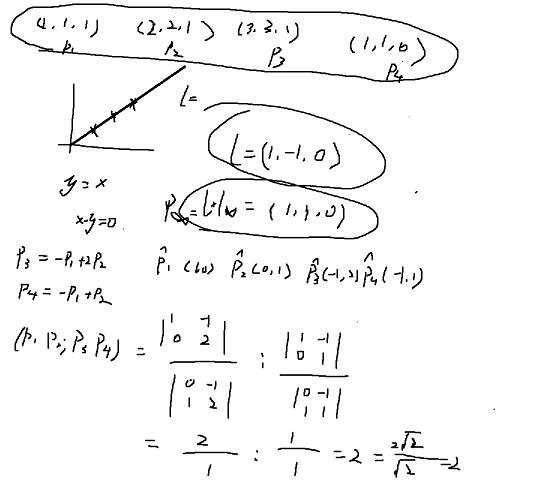 (1, 1, 1) (2, 2, 1) (3, 3, 1) (1, 1, 0)
P₁ P₂ P₃ P₄
l=
l=(1,-1,0)
y=x
x-y=0
P∞=l×l∞ = (1,1,0)
P₃ = -P₁+2P₂
P₄ = -P₁+P₂
P̂₁ (1,0) P̂₂(0,1) P̂₃(-1,2) P̂₄(-1,1)
(P₁ P₂; P₃ P₄) = |1 -1; 0 2| / |0 -1; 1 2| : |1 -1; 0 1| / |0 -1; 1 1|
= 2/1 : 1/1 = 2 = 2√2/√2 = 2